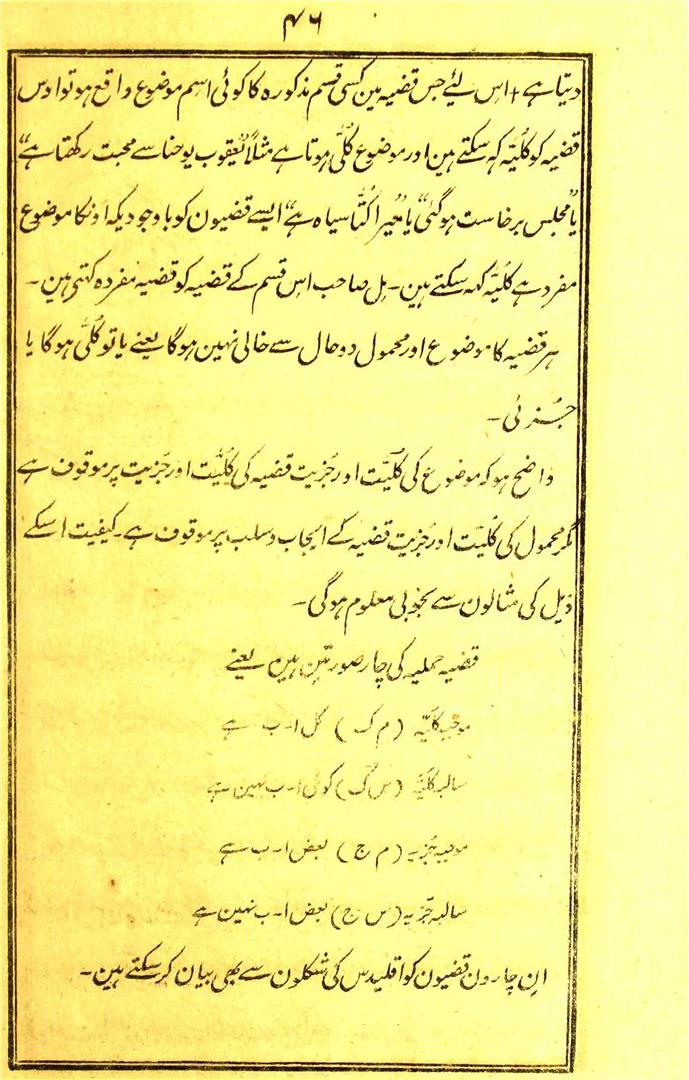 ۴۶
دیتا ہے + اس لئے جس قضیہ مین کسی قسم مذکورہ کا کوئی اسم موضوع واقع ہو تو اوس
قضیہ کو کلیّہ کہہ سکتے ہین اور موضوع کلّی ہوتا ہے مثلاً ”یعقوب یوحنا سے محبت رکھتا ہے“
یا ”مجلس برخاست ہوگئی“ یا ”میرا کُتّا سیاہ ہے“ ایسے قضیون کو باوجودیکہ اونکا موضوع
مفرد ہے کلیّہ کہہ سکتے ہین ۔ مِل صاحب اس قسم کے قضیہ کو قضیہ مفردہ کہتی ہین ۔
ہر قضیہ کا موضوع اور محمول دو حال سے خالی نہین ہوگا یعنے یا تو کُلّی ہوگا یا
جُزئی ۔
واضح ہو کہ موضوع کی کلیّت اور جُزیت قضیہ کی کُلیّت اور جُزیت پر موقوف ہے
مگر محمول کی کُلیّت اور جُزیت قضیہ کے ایجاب و سلب پر موقوف ہے ۔ کیفیت اسکے
ذیل کی مثالون سے بخوبی معلوم ہوگی ۔
قضیہ حملیہ کی چار صورتین ہین یعنے
موجبہ کلیّہ (م ک) کل ا ۔ ب ہے
سالبہ کلیّہ (س ک) کوئی ا ۔ ب نہین ہے
موجبہ جُزیہ (م ج) بعض ا ۔ ب ہے
سالبہ جُزیہ (س ج) بعض ا ۔ ب نہین ہے
اِن چارون قضیون کو اقلیدس کی شکلون سے بھی بیان کر سکتے ہین ۔